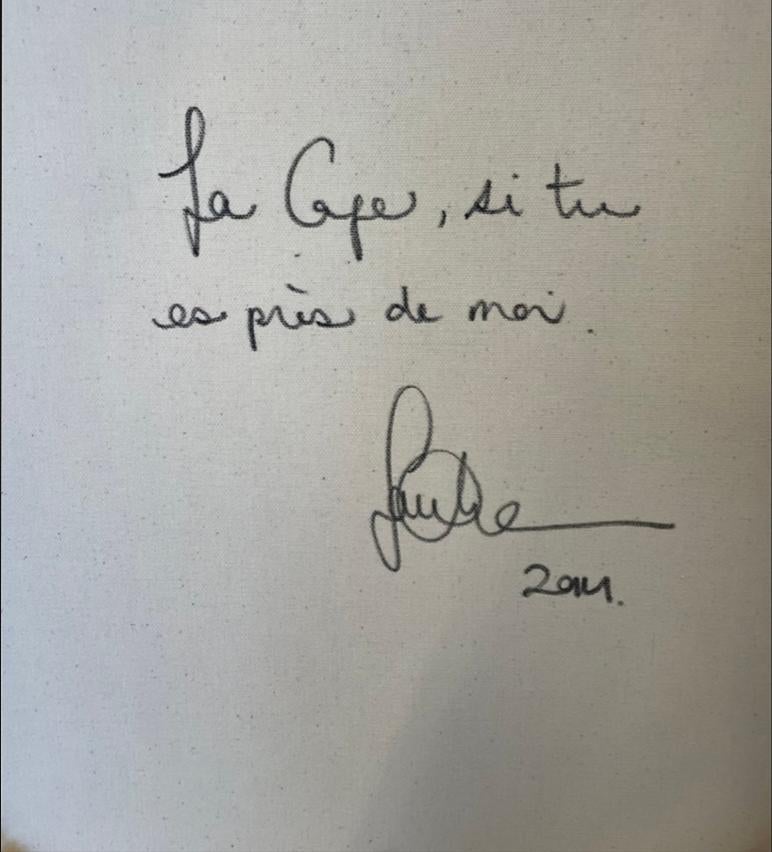 La Cape, si tu
es près de moi.
2014.